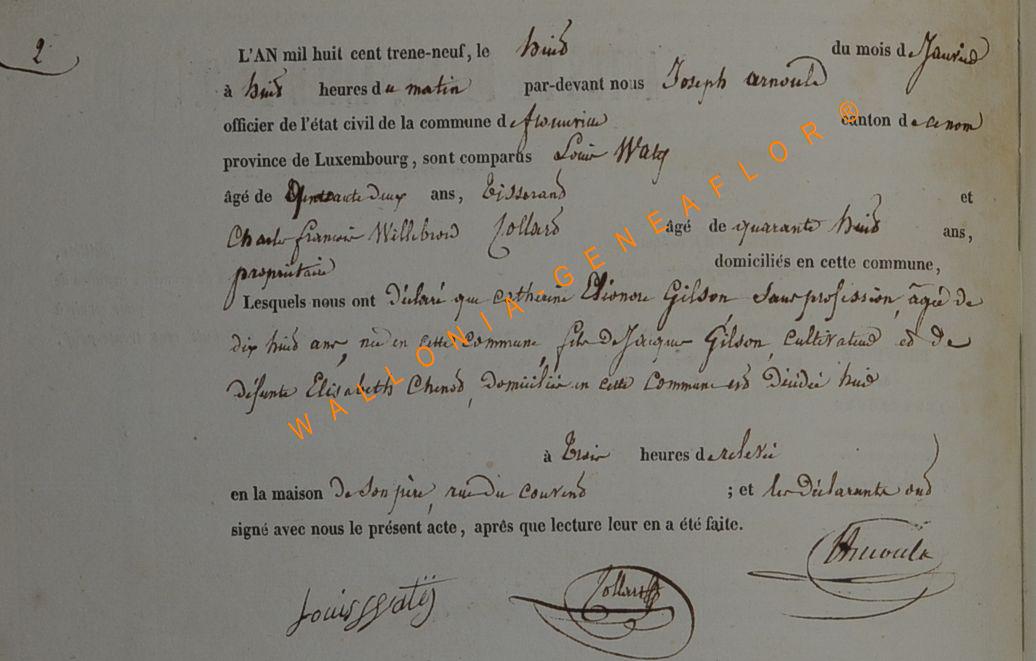 2
L'AN mil huit cent trene-neuf, le huit du mois de Janvier
à huit heures du matin par-devant nous Joseph arnould
officier de l'état civil de la commune de florenville canton de ce nom
province de Luxembourg, sont comparus Louis Waty
âgé de ans, tisserand et
Charles françois Willebrord Collard âgé de quarante huit ans,
propriétaire domiciliés en cette commune,
Lesquels nous ont déclaré que catherine Eléonore Gilson sans profession, âgée de
dix huit ans, née en cette commune, fille de Jacques Gilson, cultivateur et de
défunte Elisabeth Chenot, domiciliée en cette commune est décédée
à trois heures de relevée
en la maison de son père, rue du couvent ; et les déclarants ont
signé avec nous le présent acte, après que lecture leur en a été faite.
Arnould
Louis Watÿ
Collard
WALLONIA-GENEAFLOR®